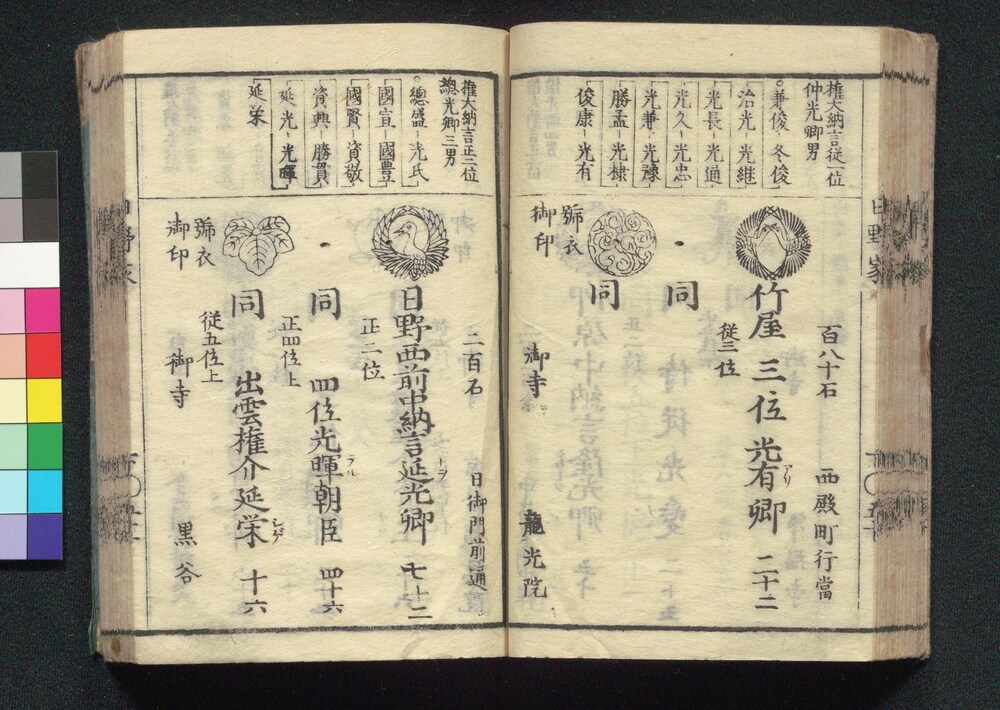 権大納言従一位
仲光卿男
○兼俊 冬俊
治光 光継
光長 光通
光久 光忠
光兼 光豫
勝孟 光棣
俊康 光有
百八十石 西殿町行當
竹屋 三位光有卿 二十二
アリ
従三位
同
同
號衣
御印
御寺 龍光院
日野家
権大納言正二位
總光卿三男
○總盛 光氏
國宣 國豊
國賢 資敬
資興 勝貫
延光 光暉
延栄
二百石 日御門前通
日野西前中納言延光卿 七十二
正二位
同 四位光暉朝臣 四十六
テル
正四位上
同 出雲権介延栄 十六
従五位上
號衣
御印
御寺 黒谷
日野家